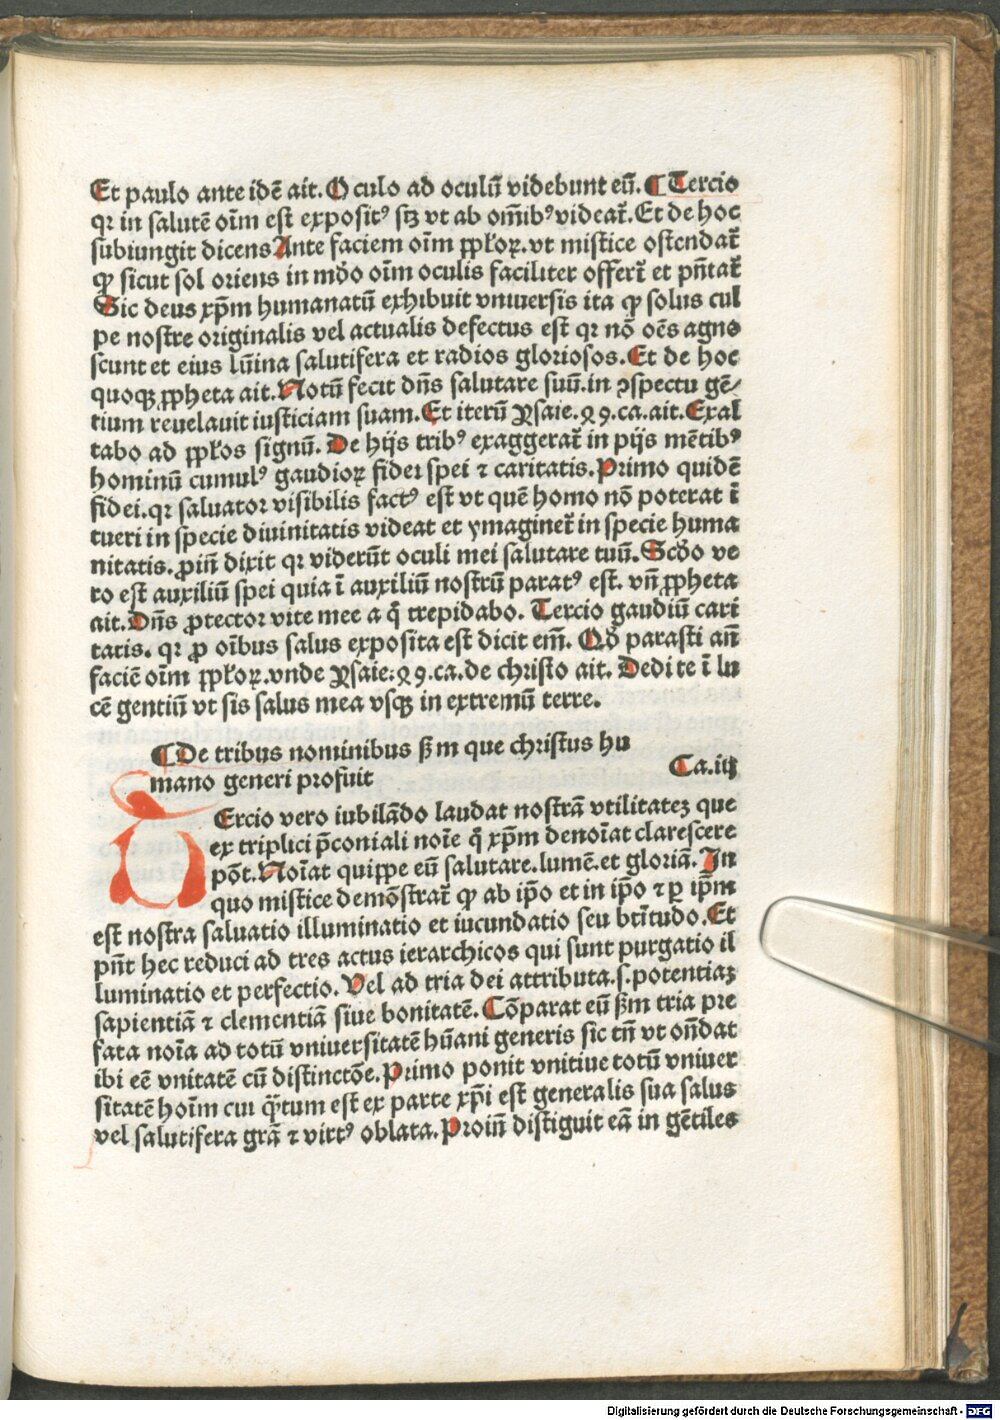 Et paulo ante idē ait. O culo ad oculū videbunt eū. ¶ Tercio
qꝛ in salutē oīm est exposit⁹ sꝫ vt ab om̄ib⁹ videat̄. Et de hoc
subiungit dicens Ante faciem oīm ꝓp̄loꝝ. vt mistice ostendat̄
ꝙ sicut sol oriens in mōo oīm oculis faciliter offert̄ et pn̄tat̄
Sic deus xp̄m humanatū exhibuit vniuersis ita ꝙ solus cul
pe nostre originalis vel actualis defectus est qꝛ nō oēs agno
scunt et eius lūina salutifera et radios gloriosos. Et de hoc
quoqꝫ ꝓpheta ait. Notū fecit dn̄s salutare suū. in ꝯspectu gē⸗
tium reuelauit iusticiam suam. Et iterū Ysaie. 49. ca. ait. Exal
tabo ad pp̄los signū. De hijs trib⁹ exaggerat̄ in pijs mētib⁹
hominū cumul⁹ gaudioꝝ fidei spei ⁊ caritatis. Primo quidē
fidei. qꝛ saluator visibilis fact⁹ est vt quē homo nō poterat ī
tueri in specie diuinitatis videat et ymaginet̄ in specie huma
nitatis. ꝓin̄ dixit qꝛ viderūt oculi mei salutare tuū. Scōo ve
ro est auxiliū spei quia ī auxiliū nostrū parat⁹ est. vn̄ ꝓpheta
ait. Dn̄s ꝓtector vite mee a q̄ trepidabo. Tercio gaudiū cari
tatis. qꝛ ꝓ oībus salus exposita est dicit em̄. Qō parasti an̄
faciē oīm pp̄loꝝ. vnde Ysaie: 49. ca. de christo ait. Dedi te ī lu
cē gentiū vt sis salus mea vsqꝫ in extremū terre.
¶ De tribus nominibus ẜm que christus hu
mano generi profuit Ca. iij
Tercio vero iubilādo laudat nostrā vtilitateꝫ que
ex triplici p̄coniali noīe q̄ xp̄m denoīat clarescere
pōt. Noīat quippe eū salutare. lumē. et gloriā. In
quo mistice demōstrat̄ ꝙ ab ip̄o et in ip̄o ⁊ ꝑ ip̄m
est nostra saluatio illuminatio et iucundatio seu btītudo. Et
pn̄t hec reduci ad tres actus ierarchicos qui sunt purgatio il
luminatio et perfectio. Vel ad tria dei attributa. s. potentiaꝫ
sapientiā ⁊ clementiā siue bonitatē. Cōparat eū ẜm tria pre
fata noīa ad totū vniuersitatē hūani generis sic tn̄ vt on̄dat
ibi eē vnitatē cū distinctōe. Primo ponit vnitiue totū vniuer
sitatē hoīm cui q̄tum est ex parte xp̄i est generalis sua salus
vel salutifera grā ⁊ virt⁹ oblata. Proin̄ distiguit eā in gētiles
Digitalisierung gefördert durch die Deutsche Forschungsgemeinschaft - DFG